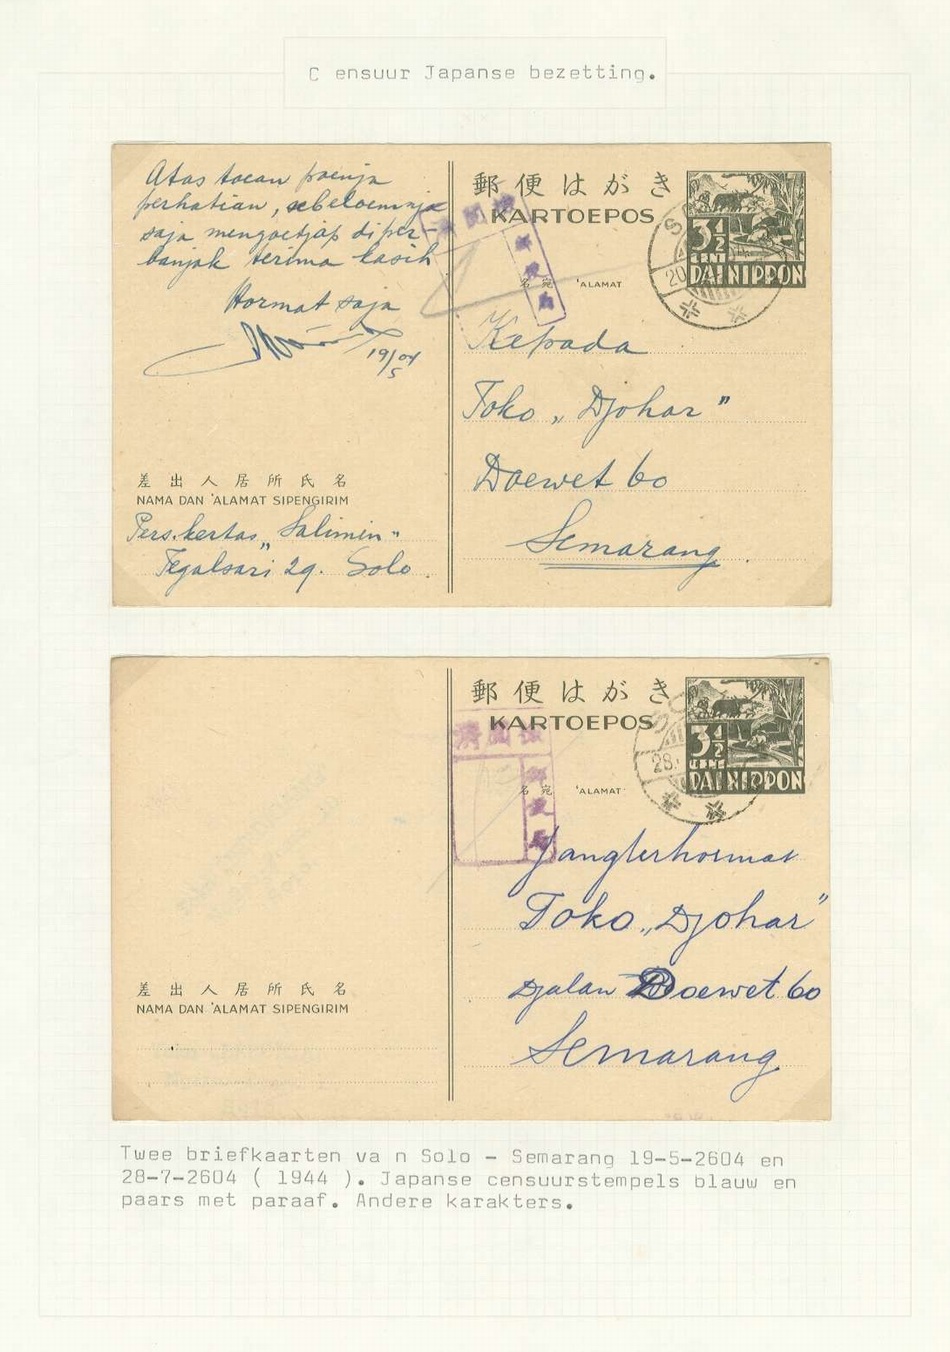 C ensuur Japanse bezetting.
Atas toean poenja
perhatian, sebeloemnja
saja mengoetjap diper-
banjak terima kasih
Hormat saja
19/5 04
差出人居所氏名
NAMA DAN 'ALAMAT SIPENGIRIM
Pers.kertas „Salimin"
Tegalsari 29. Solo.
郵便はがき
KARTOEPOS
3½
CENT
DAI NIPPON
20
検閲済
郵便局
名宛 'ALAMAT
Kepada
Toko „Djohar"
Doewet 60
Semarang
郵便はがき
KARTOEPOS
3½
CENT
DAI NIPPON
SO
28.
検閲済
郵便局
名宛 'ALAMAT
Jangterhormat
Toko „Djohar"
Djalan Doewet 60
Semarang
差出人居所氏名
NAMA DAN 'ALAMAT SIPENGIRIM
Twee briefkaarten va n Solo - Semarang 19-5-2604 en
28-7-2604 ( 1944 ). Japanse censuurstempels blauw en
paars met paraaf. Andere karakters.